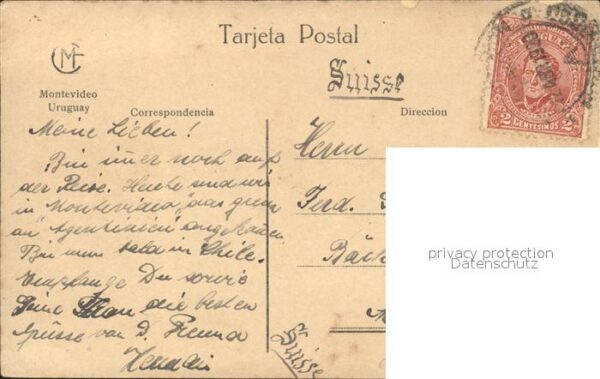 Tarjeta Postal
CMF
Montevideo
Uruguay
Correspondencia
Direccion
Suisse
URUGUAY
2 CENTESIMOS 2
Meine Lieben!
Bin imer noch auf
der Reise. Heute sind wir
in Montevideo, das
an Argentinien
Bin nun bald in Chile.
Empfange Du sowie
Deine Frau die besten
Grüsse von D. Freund
Herrn
Ferd.
Bäck
Suisse
privacy protection
Datenschutz